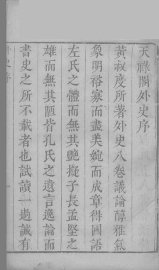 天祿閣外史序
黃叔度所著外史八卷議論醇雅氣
象明裕寡而盡美婉而成章得國語
左氏之體而無其艷擬子長孟堅之
雄而無其恒皆孔氏之遺言逸論而
書史之所不載者也試讀一過誠有